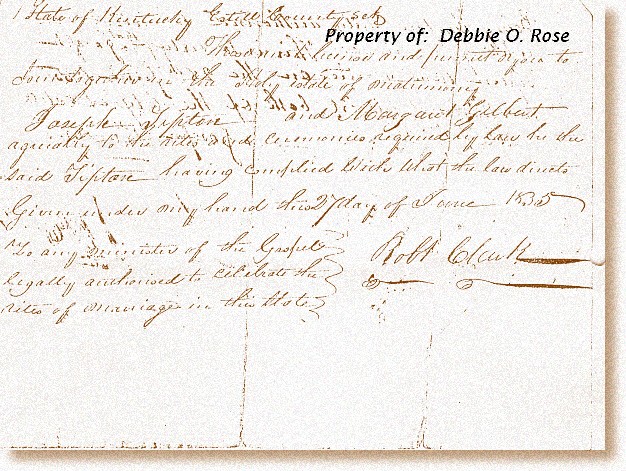 State of Kentucky Estill County sct
Property of: Debbie O. Rose
These are to license and permit you to
Join together in the holy estate of matrimony
Joseph Tipton and Margaret Gilbert
agreeably to the rites and ceremonies required by Law he the
said Tipton having complied with what the law directs
Given under my hand this 27 day of June 1835
To any minister of the Gospel
legally authorised to celebrate the
rites of marriage in this State
Robt Clark